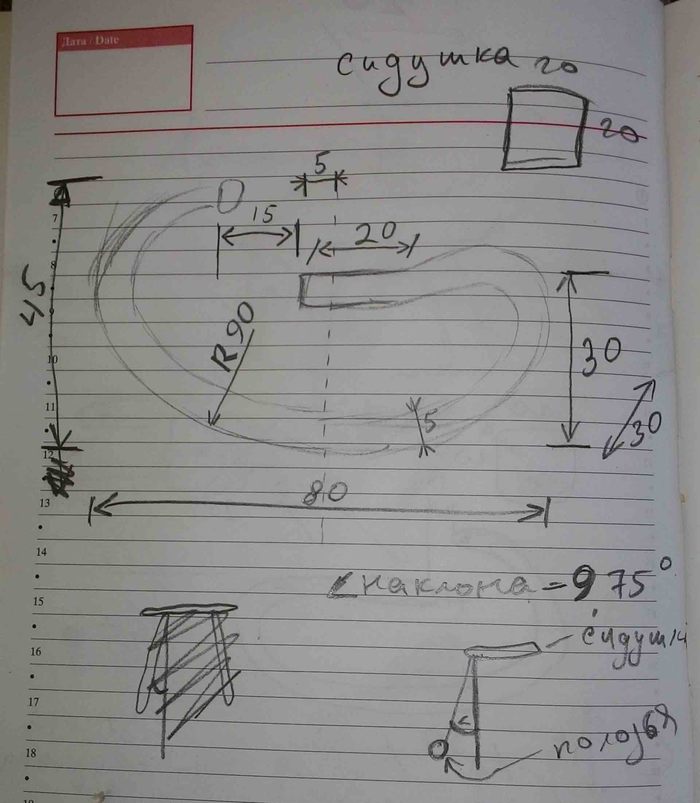 Дата / Date
сидушка 20
20
5
15
20
45
R 90
30
30
5
80
∠ наклона = 75°
сидушк
полозья
7
8
9
10
11
12
13
14
15
16
17
18